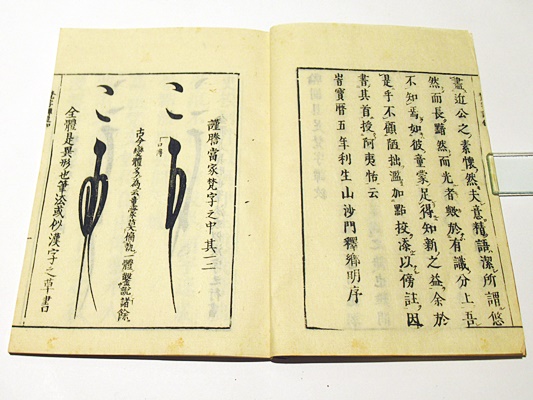 畫近公之素懷然夫意精語潔所謂悠
然而長黯然而光者數於有識分上吾
不知焉如彼童蒙足得知新之益余於
是乎不顧陋拙濫加點挍添以傍註因
書其首授阿夷恬云
旹寶曆五年利生山沙門釋鄉明序
謹謄當家梵字之中其二三
全體是異形也筆法或似漢字之草書